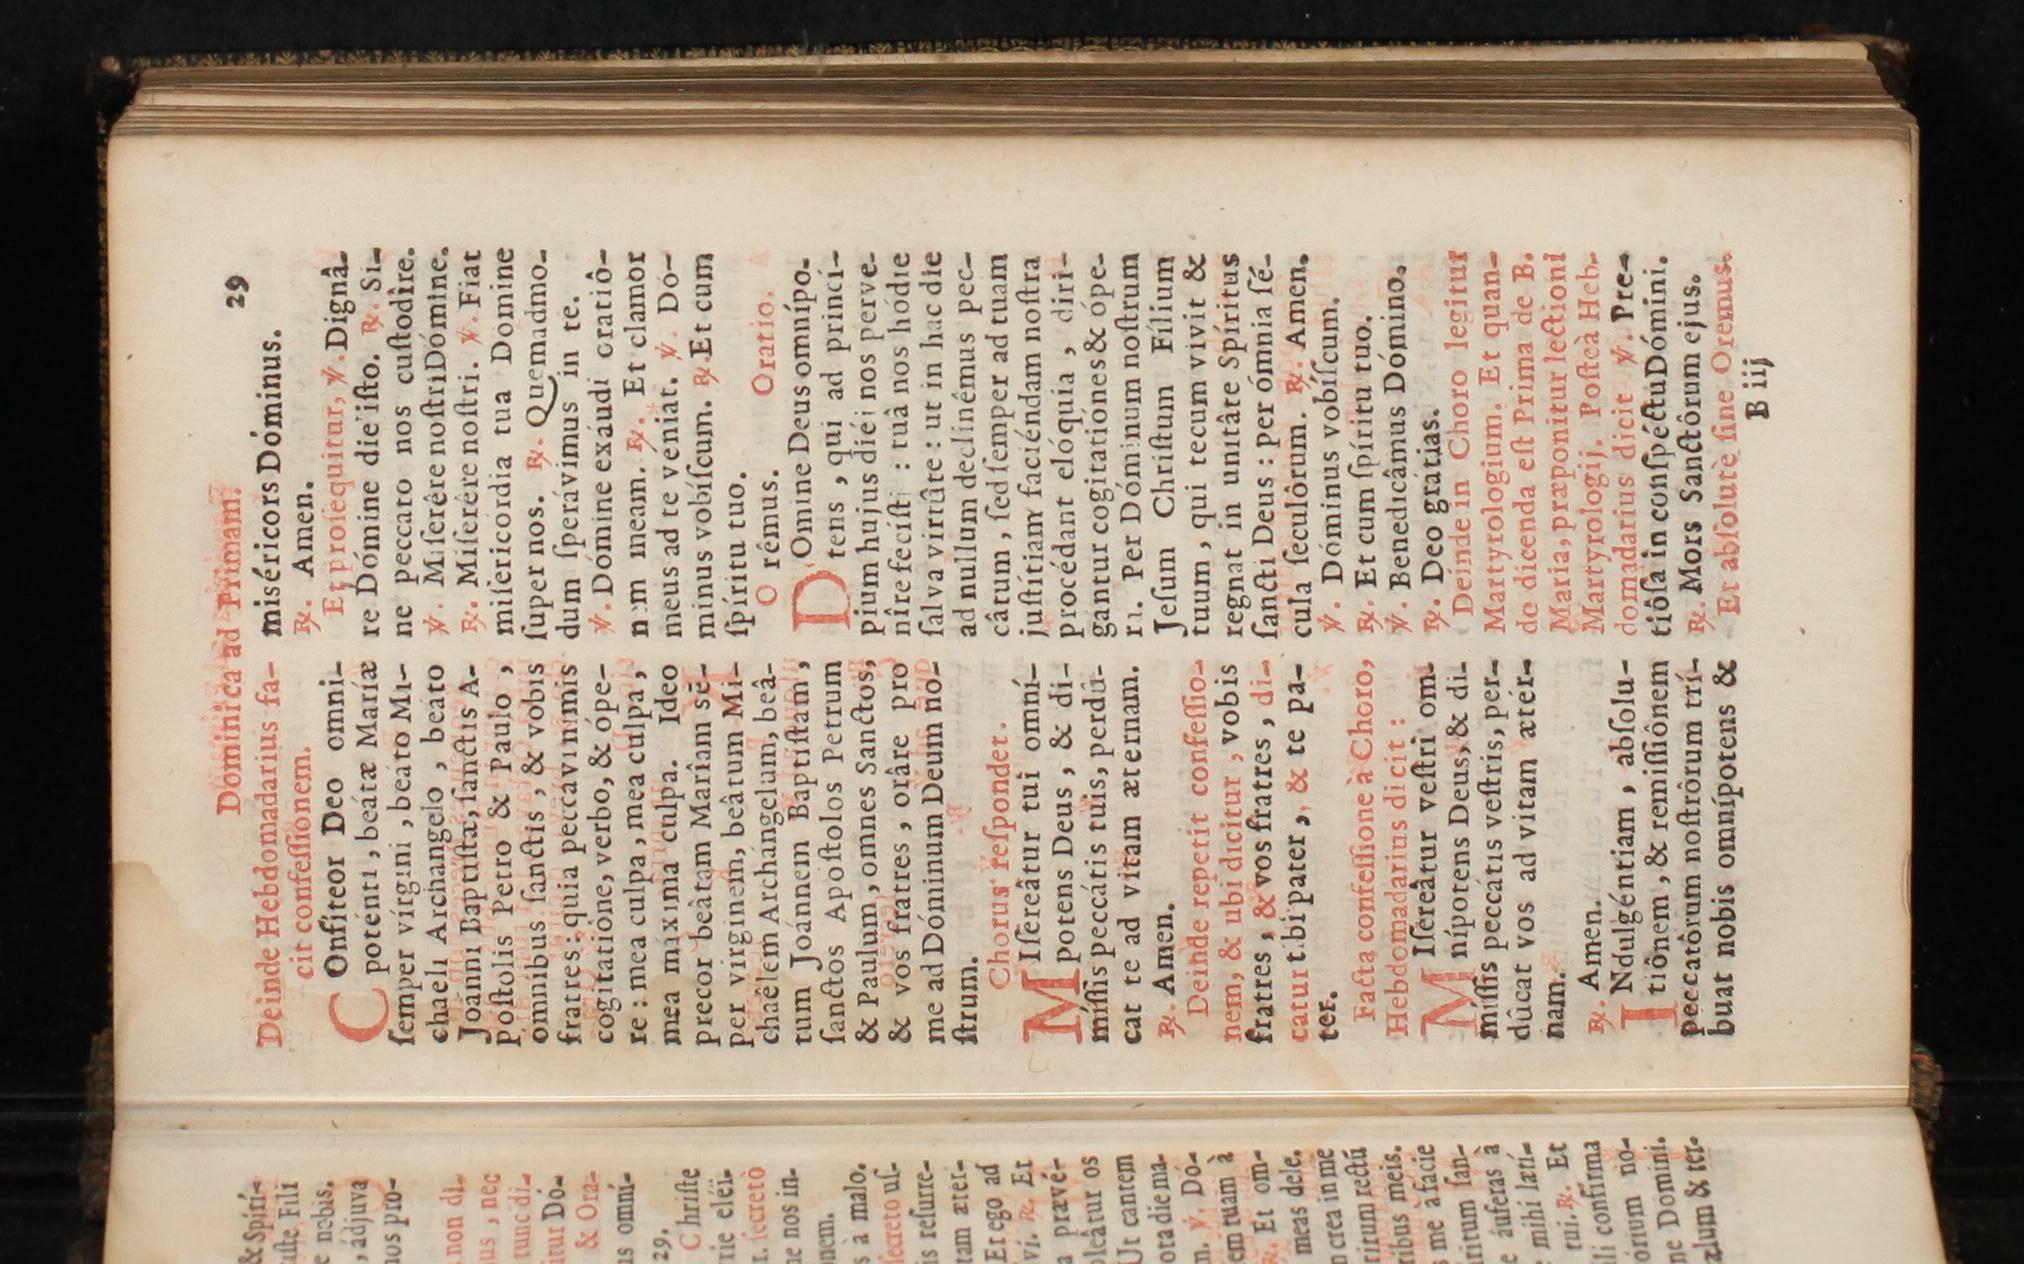 Dominica ad Primam. 29
Deinde Hebdomadarius fa-
cit confeſſionem.
COnfiteor Deo omni-
poténti, beátæ Maríæ
ſemper vírgini, beáto Mi-
chaeli Archangelo, beáto
Joanni Baptiſtæ, ſanctis A-
póſtolis Petro & Paulo,
omnibus ſanctis, & vobis
fratres: quia peccavi nimis
cogitatiône, verbo, & ópe-
re: mea culpa, mea culpa,
mea maxima culpa. Ideo
precor beâtam Marîam sẽ-
per vírginem, beâtum Mi-
chaêlem Archángelum, beâ-
tum Joánnem Baptíſtam,
ſanctos Apoſtolos Petrum
& Paulum, omnes Sanctos,
& vos fratres, orâre pro
me ad Dóminum Deum no-
ſtrum.
Chorus reſpondet.
MIſereâtur tui omní-
potens Deus, & di-
míſſis peccátis tuis, perdû-
cat te ad vitam æternam.
℟. Amen.
Deinde repetit confeſſio-
nem, & ubi dicitur, vobis
fratres, & vos fratres, di-
catur tibi pater, & te pa-
ter.
Facta confeſſione à Choro,
Hebdomadarius dicit:
MIſereâtur veſtri om-
nípotens Deus, & di-
míſſis peccátis veſtris, per-
dûcat vos ad vitam ætér-
nam.
℟. Amen.
INdulgéntiam, abſolu-
tiônem, & remiſſiônem
peccatôrum noſtrôrum trí-
buat nobis omnípotens &
miséricors Dóminus.
℟. Amen.
Et proſequitur, ℣. Dignâ-
re Dómine die iſto. ℟. Si-
ne peccato nos cuſtodîre.
℣. Miſerêre noſtri Dómine.
℟. Miſerêre noſtri. ℣. Fiat
miſericórdia tua Domine
ſuper nos. ℟. Quemadmo-
dum ſperávimus in te.
℣. Dómine exáudi oratiô-
nem meam. ℟. Et clamor
meus ad te véniat. ℣. Dó-
minus vobíſcum. ℟. Et cum
ſpíritu tuo.
O rémus. Oratio.
DOmine Deus omnípo-
tens, qui ad princí-
pium hujus diéi nos perve-
nîre fecíſti: tuâ nos hódie
ſalva virtûte: ut in hac die
ad nullum declinêmus pec-
câtum, ſed ſemper ad tuam
juſtítiam faciéndam noſtra
procédant elóquia, diri-
gantur cogitatiónes & ópe-
ra. Per Dóminum noſtrum
Jeſum Chriſtum Fílium
tuum, qui tecum vivit &
regnat in unitâte Spíritus
ſancti Deus: per ómnia ſé-
cula ſeculôrum. ℟. Amen.
℣. Dóminus vobíſcum.
℟. Et cum ſpíritu tuo.
℣. Benedicâmus Dómino.
℟. Deo grátias.
Deinde in Choro legitur
Martyrologium. Et quan-
do dicenda eſt Prima de B.
Maria, præponitur lectioni
Martyrologij. Poſteà Heb-
domadarius dicit ℣. Pre-
tiôſa in conſpéctu Dómini.
℟. Mors Sanctôrum ejus.
Et abſolutè ſine Oremus.
B iij
& Spíri-
Fili
nobis.
, ádjuva
nos pro-
non di-
, nec
tunc di-
itur Dó-
& Ora-
omní-
29.
Chriſte
eléi-
ſecretò
ne nos in-
à malo.
ſecreto uſ-
reſurre-
tam æter-
Et ego ad
℟. Et
prævé-
pleâtur os
Ut cantem
ota die ma-
℣. Dó-
tuam à
℟. Et om-
meas dele.
crea in me
rectú
meis.
me à facie
ſan-
áuferas à
mihi læti-
tui. ℟. Et
confirma
no-
Dómini.
& ter-